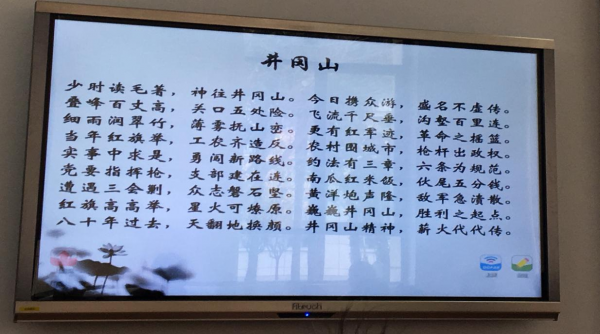 井冈山
少时读毛著，神往井冈山。今日携众游，盛名不虚传。
叠峰百丈高，关口五处险。飞流千尺垂，沟壑百里连。
细雨润翠竹，薄雾抚山峦。更有红军迹，革命之摇篮。
当年红旗举，工农齐造反。农村围城市，枪杆出政权。
实事中求是，勇闯新路线。约法有三章，六条为规范。
党要指挥枪，支部建在连。南瓜红米饭，伏尾五分钱。
遭遇三会剿，众志磐石坚。黄洋炮声隆，敌军急溃散。
红旗高高举，星火可燎原。巍巍井冈山，胜利之起点。
八十年过去，天翻地换颜。井冈山精神，薪火代代传。